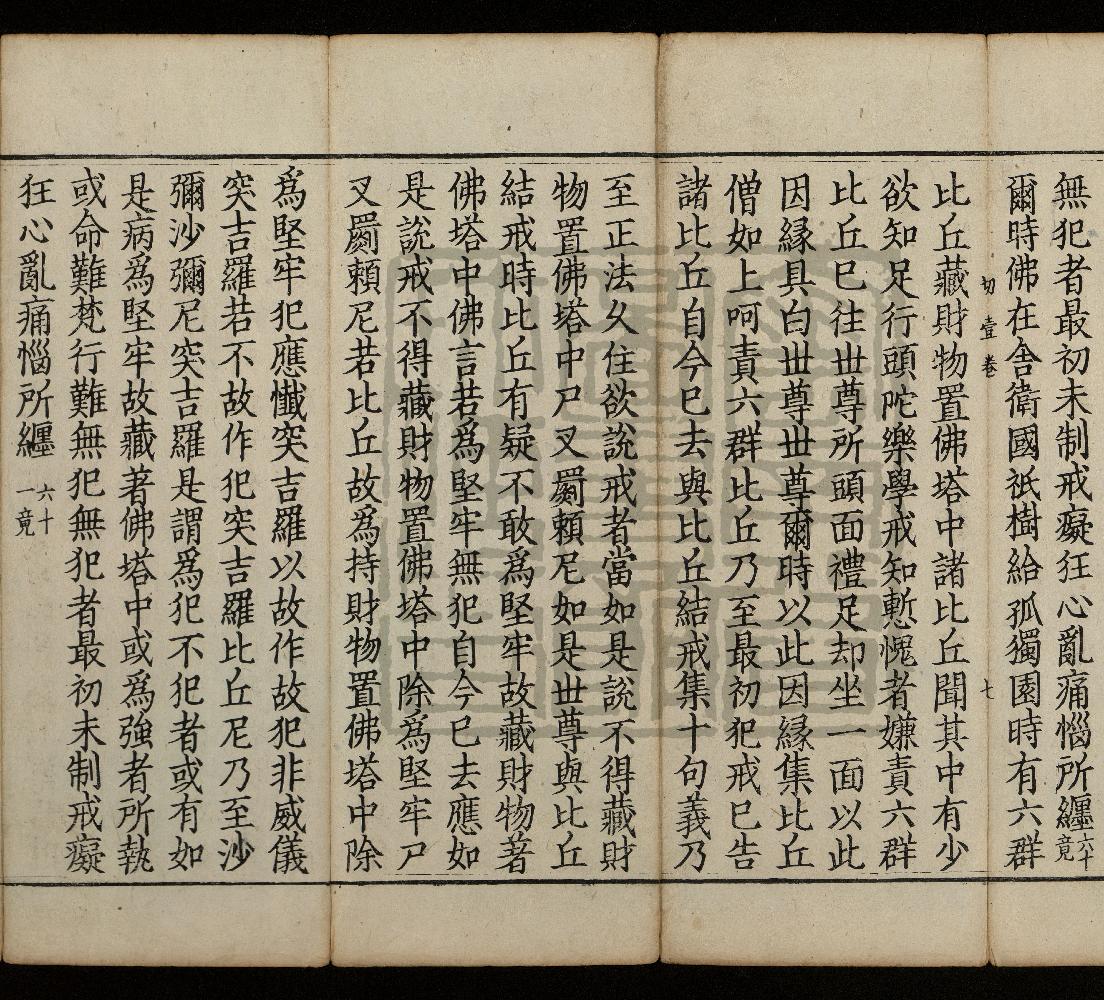 無犯者最初未制戒癡狂心亂痛惱所纏六十竟
爾時佛在舍衛國祇樹給孤獨園時有六群
切 壹卷 七
比丘藏財物置佛塔中諸比丘聞其中有少
欲知足行頭陀樂學戒知慙愧者嫌責六群
比丘已往世尊所頭面禮足却坐一面以此
因緣具白世尊世尊爾時以此因緣集比丘
僧如上呵責六群比丘乃至最初犯戒已告
諸比丘自今已去與比丘結戒集十句義乃
至正法久住欲說戒者當如是說不得藏財
物置佛塔中尸叉罽賴尼如是世尊與比丘
結戒時比丘有疑不敢為堅牢故藏財物著
佛塔中佛言若為堅牢無犯自今已去應如
是說戒不得藏財物置佛塔中除為堅牢尸
叉罽賴尼若比丘故為持財物置佛塔中除
為堅牢犯應懺突吉羅以故作故犯非威儀
突吉羅若不故作犯突吉羅比丘尼乃至沙
彌沙彌尼突吉羅是謂為犯不犯者或有如
是病為堅牢故藏著佛塔中或為強者所執
或命難梵行難無犯無犯者最初未制戒癡
狂心亂痛惱所纏 六十一竟